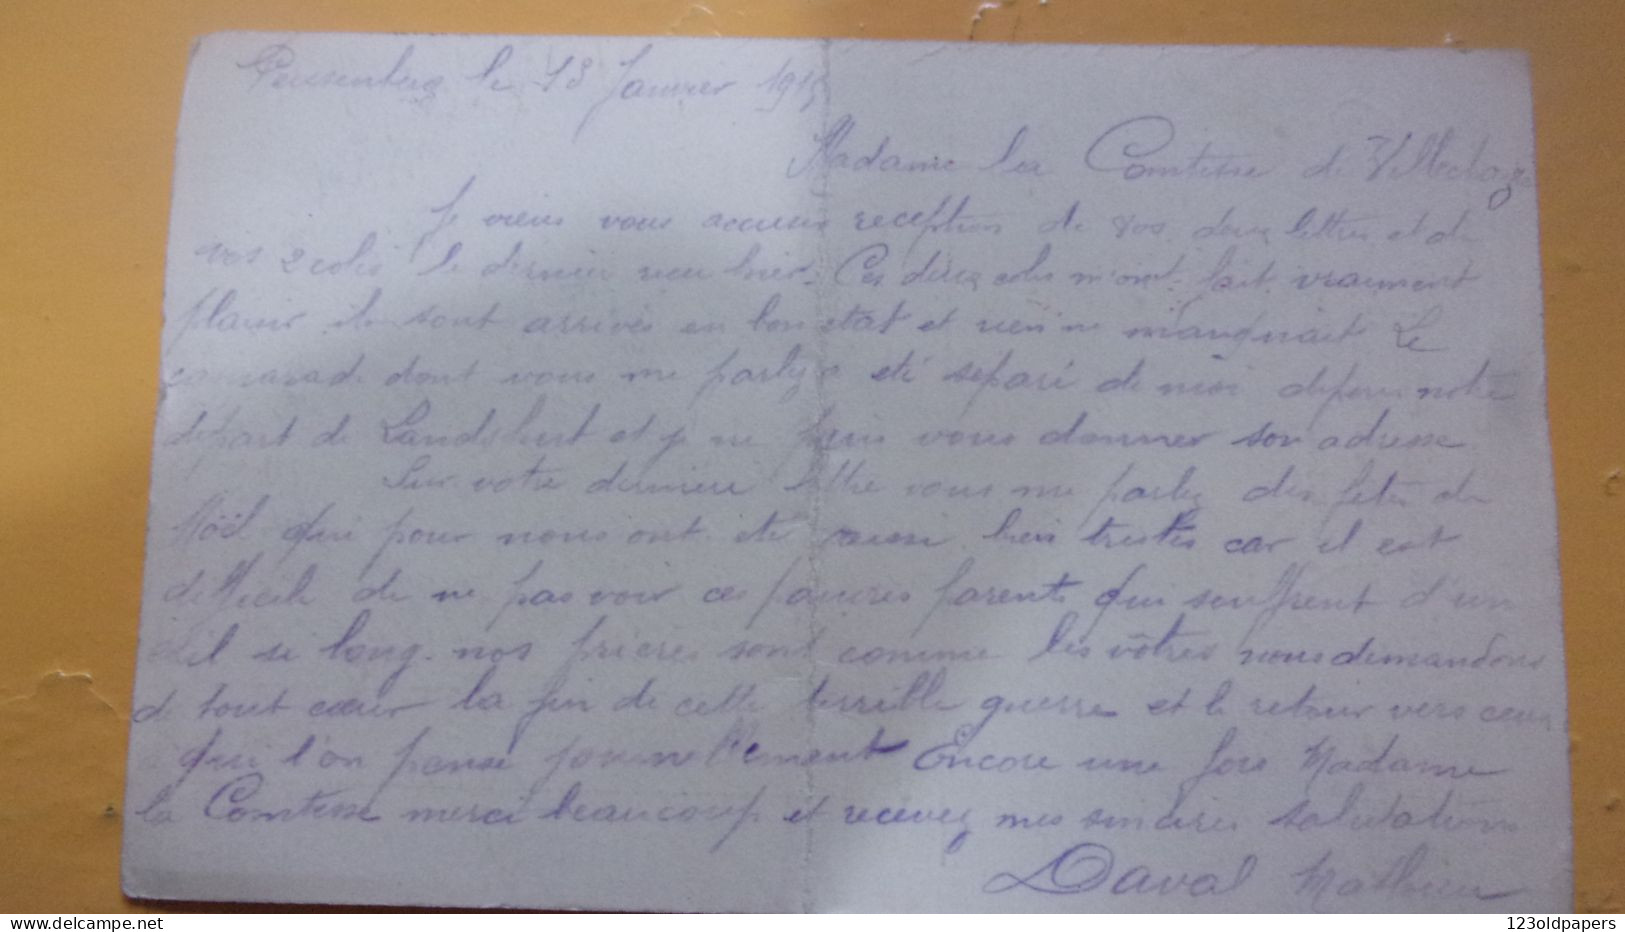 Peissenberg le 13 Janvier 1915
Madame la Comtesse de
Je viens vous accuser reception de vos deux lettres et de
vos 2 colis le dernier recu hier. Ces deux colis m'ont fait vraiment
plaisir ils sont arrivés en bon etat et rien ne manquait Le
camarade dont vous me parlez a eté separé de moi depuis notre
depart de Landshut et je ne puis vous donner son adresse
Sur votre derniere lettre vous me parlez des fetes de
Noël qui pour nous ont ete aussi bien tristes car il est
difficile de ne pas voir ces pauvres parents qui souffrent d'un
exil si long. nos prieres sont comme les vôtres nous demandons
de tout cœur la fin de cette terrible guerre et le retour vers ceux
qui l'on pense journellement Encore une fois Madame
la Comtesse merci beaucoup et recevez mes sinceres salutations
Daval Mathieu
123oldpapers